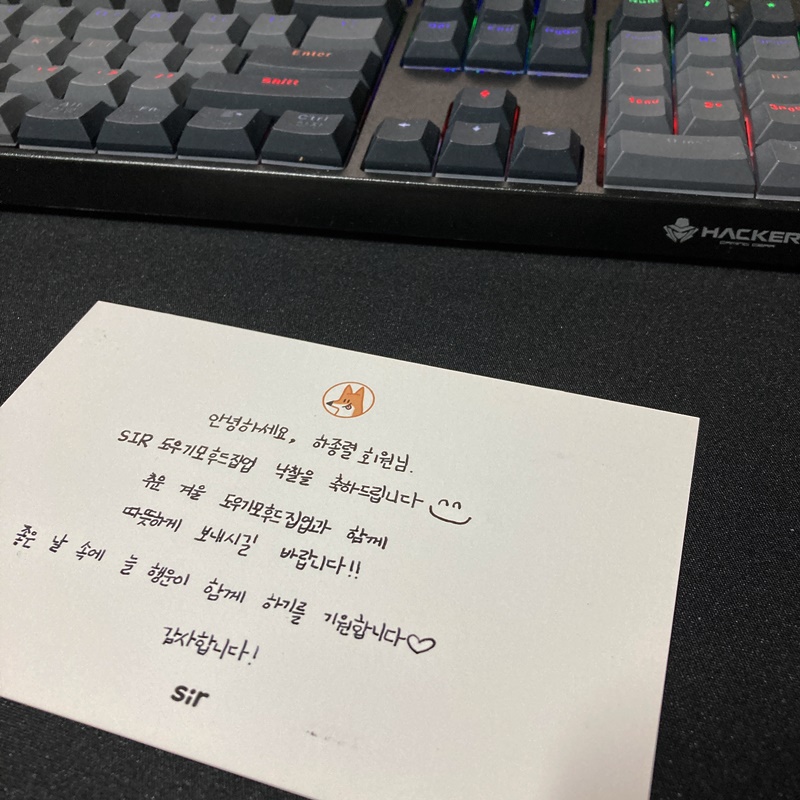 Enter
Shift
Alt
Fn
Ctrl
End
HACKER
GAMING GEAR
안녕하세요, 하종렬 회원님.
SIR 도우기모후드집업 낙찰을 축하드립니다
추운 겨울 도우기모후드집업과 함께
따뜻하게 보내시길 바랍니다!!
좋은 날 속에 늘 행운이 함께 하기를 기원합니다♡
감사합니다!
sir